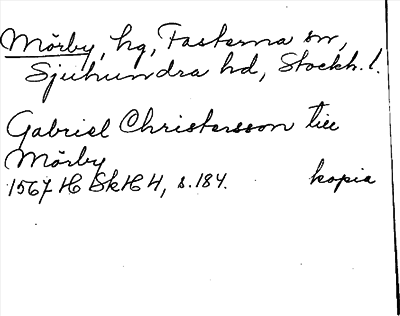 Mörby, hg, Fasterna sn,
Sjuhundra hd, Stockh. l.
Gabriel Christersson till
Mörby
1567 H SkH 4, s. 184. kopia